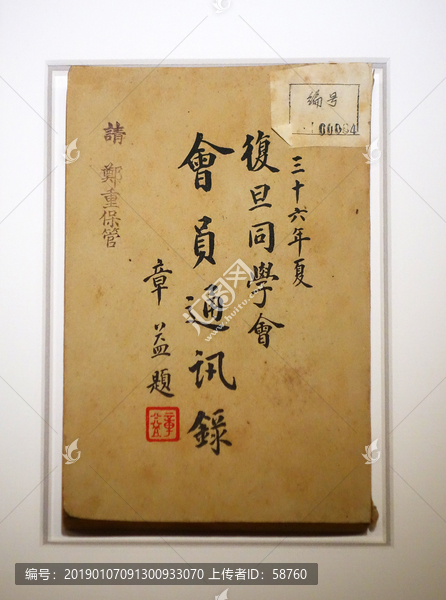 编号
00064
三十六年夏
復旦同學會
會員通訊錄
章益題
章益
請 鄭重保管
编号：20190107091300933070 上传者ID：58760